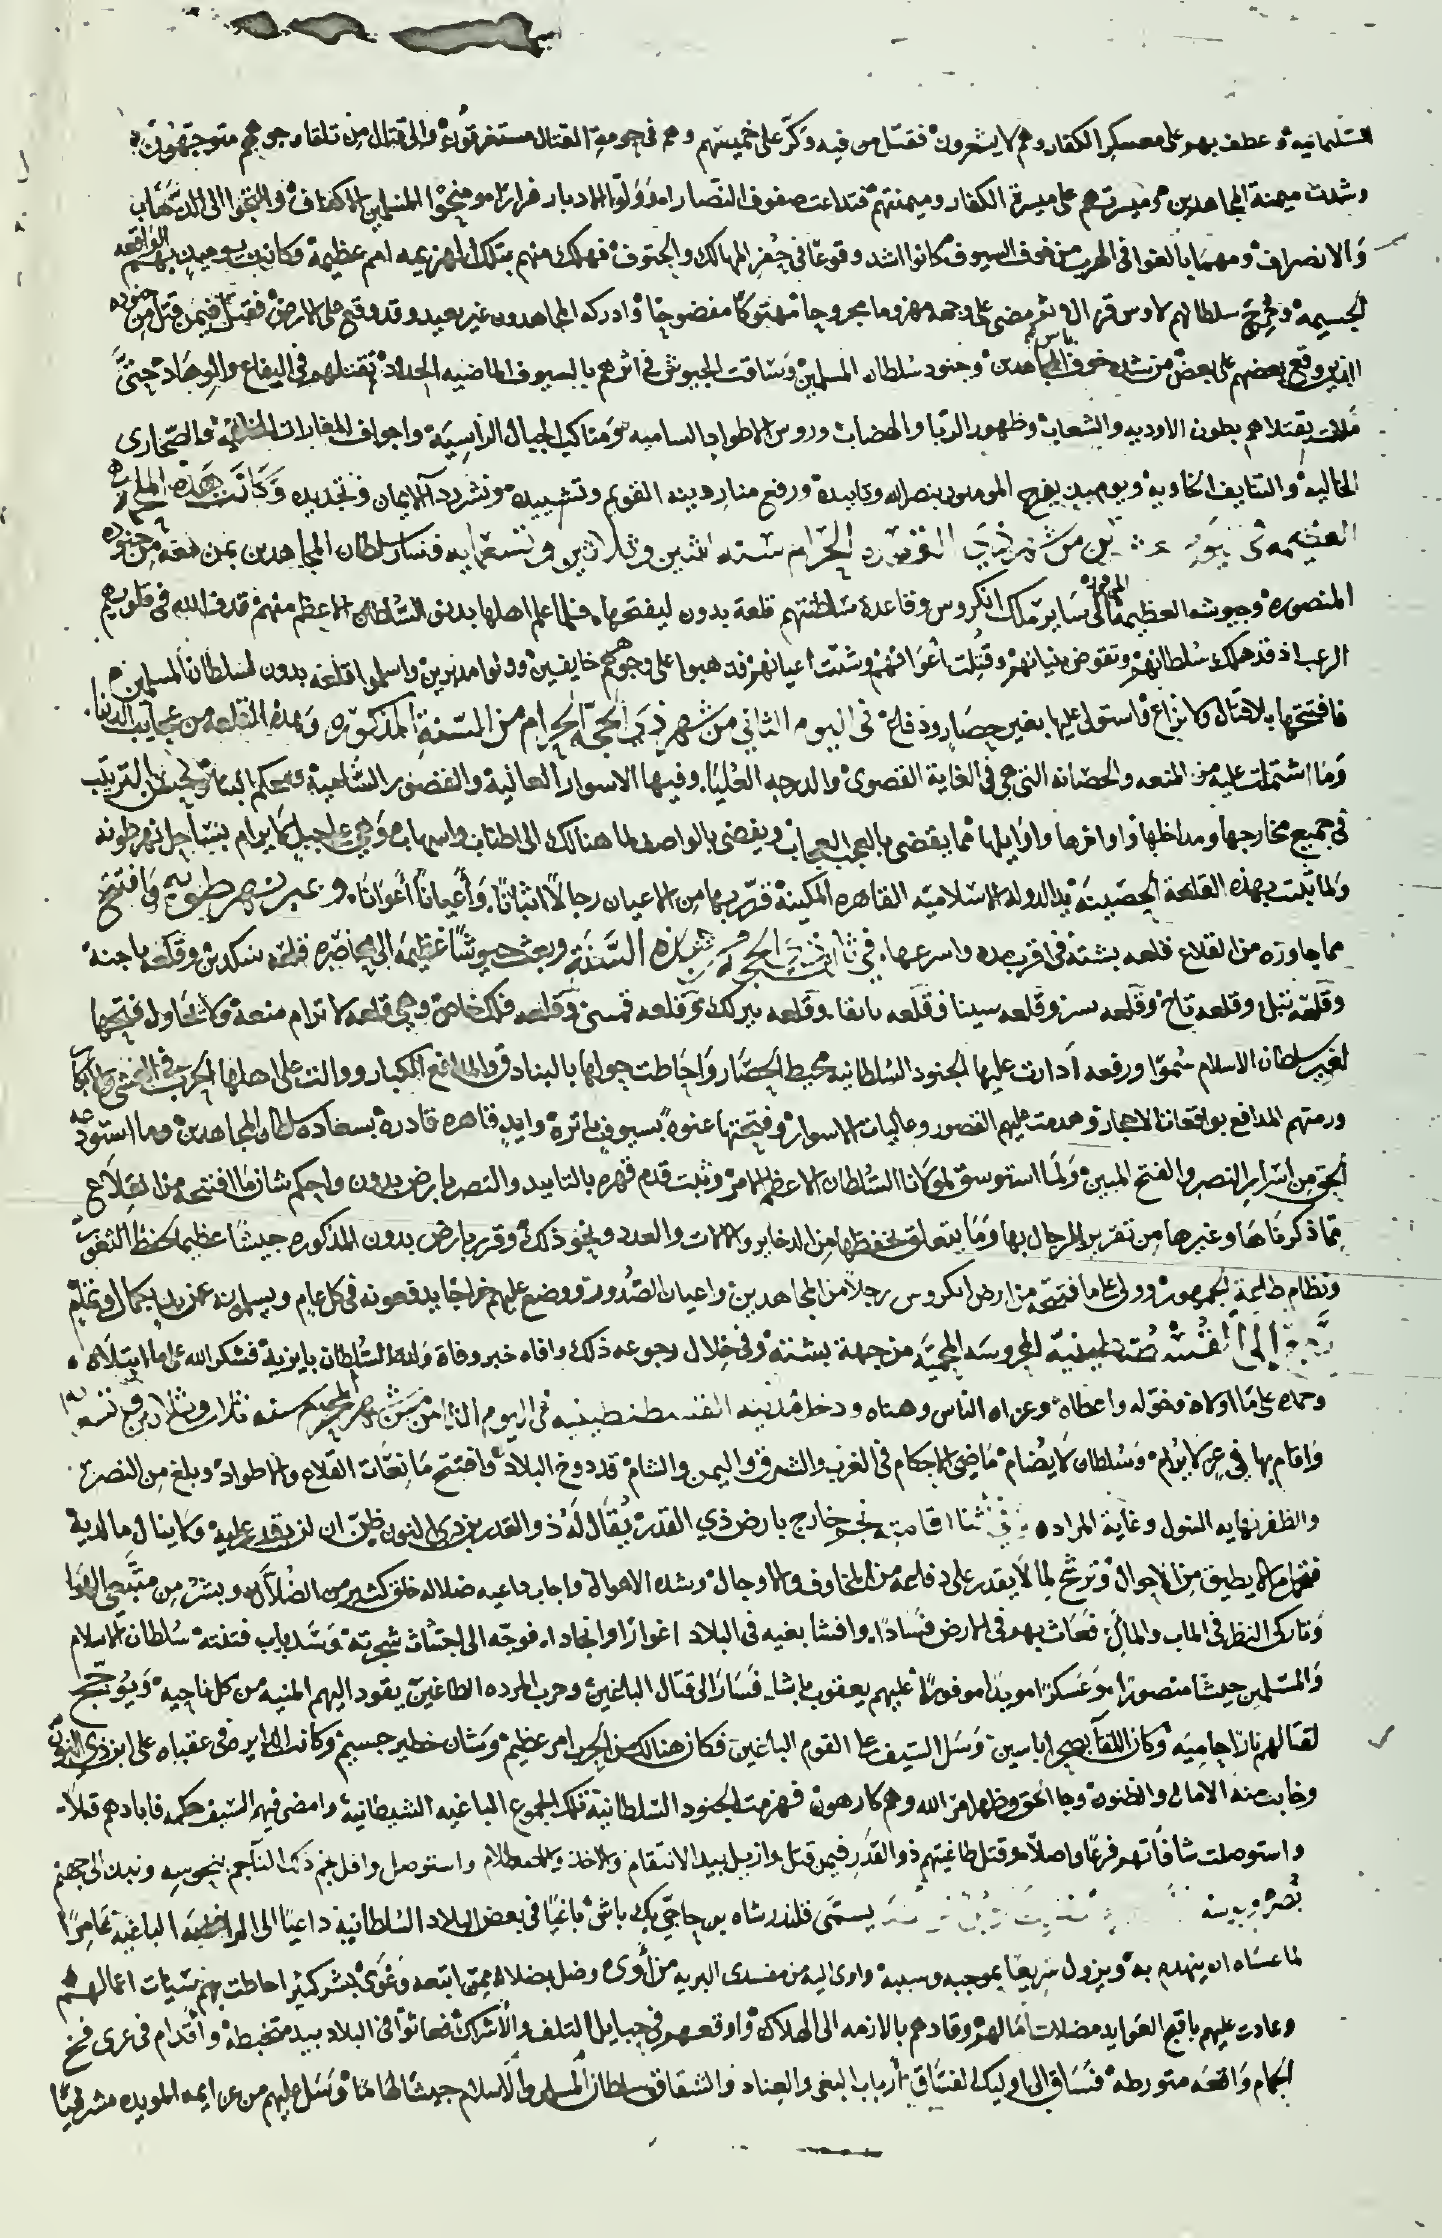 السليمانية وعطف بهم على معسكر الكفار وهم لا يشعرون فقتل من فيه وكر على خميسهم وهم في حومة القتال مستغرقون والى قتال من تلقاء وجوههم متوجهون
وشدت ميمنة المجاهدين وميسرتهم على ميسرة الكفار وميمنتهم فتداعت صفوف النصارا وولوا الادبار فرارا ومنحوا المسلمين الاكتاف والتجوا الى الذهاب
والانصراف ومهما بالغوا في الهرب من خوف السيوف كانوا اشد وقوعا في حفر المهالك والحتوف فهلك منهم بتلك الهزيمه امم عظيمة وكانت يوميذ بهم الواقعه
الجسيمة وجرح سلطانهم لاوس قرال ثم مضى على وجهه مهزوما مجروحا مهتوكا مفضوحا وادركه المجاهدون غير بعيد وقد وقع على الارض فقتل فيمن قتل من جنوده
الذين وقع بعضهم على بعض من شدة خوف باس المجاهدين وجنود سلطان المسلمين وساقت الجيوش في اثرهم بالسيوف الماضيه الحداد تقتلهم في اليفاع والوهاد حتى
ملات بقتلاهم بطون الاوديه والشعاب وظهور الربا والهضاب وروس الاطواد الساميه ومناكب الجبال الراسية واجواف المغارات والصحارى
الخاليه والتنايف الخاويه ويوميذ يفرح المومنون بنصر الله وتاييده ورفع منار دينه القويم وتشييده ونشر رداء الايمان وتجديده وكانت هذه الملحمة
العظيمه في يوم من شهر ذي القعدة الحرام سنه اثنين وثلاثين وتسعمايه فسار سلطان المجاهدين بمن معه من جنوده
المنصوره وجيوشه العظيمة الموفوره الى ساير ملك انكروس وقاعدة سلطنتهم قلعة بدون ليفتحها فلما علم اهلها بدنو السلطان الاعظم منهم قذف الله في قلوبهم
الرعب اذ قد هلك سلطانهم وتقوض بنيانهم وقتلت اعوانهم وشتت اعيانهم فذهبوا على وجوههم خايفين وولوا مدبرين واسلموا قلعة بدون لسلطان المسلمين
فافتتحها بلا قتال ولا نزاع واستولى عليها بغير حصار ودفاع في اليوم الثاني من شهر ذي الحجة الحرام من السنة المذكوره وهذه القلعه من عجايب الدنيا
وما اشتملت عليه من المنعه والحصانه التي هي في الغاية القصوى والدرجه العليا وفيها الاسوار العاليه والقصور الشامخة ومحكم البنا الترتيب
في جميع مخارجها ومداخلها واواخرها واوايلها مما يقضي بالعجب العجاب ويفضي بالواصف لما هنالك الى اطناب واسهاب وهي على جبل لا يرام بساحل نهر طونه
ولما ثبت بهذه القلعة الحصينة يد الدوله الاسلاميه القاهره المكينة قرر بها من الاعيان رجالا اثباتا واعيانا اعوانا وعبر نهر طونه وافتتح
مما جاوره من القلاع قلعه بشته في اقرب مده واسرعها في ذي الحجة من هذه السنة وبعث جيوشا عظيمة الى محاصره قلعة
وقلعة وقلعه وقلعه وقلعه وقلعه وقلعه وقلعه وقلعه وهي قلعه لا ترام منعة ولا تحاول فتحها
لغير سلطان الاسلام سموا ورفعه ادارت عليها الجنود السلطانيه محيط الحصار واحاطت حولها بالبنادق والمدافع الكبار ووالت على اهلها الحرب في العشي والابكار
ورمتهم المدافع بواقعات الاحجار وهدمت عليهم القصور وعاليات الاسوار وفتحتها عنوة بسيوف باترة وايد قاهره قادره بسعاده سلطان المجاهدين وما استودعه
الحق من اسرار النصر والفتح المبين ولما استوسق لمولانا السلطان الاعظم الامر وثبت قدم قهره بالتاييد والنصر بارض بدون واحكم شان ما افتتحه من القلاع
مما ذكرناها وغيرها من تقرير الرجال بها وما يتعلق بحفظها من الدخاير والالات والعدد ونحو ذلك وقرر بارض بدون المذكوره جيشا عظيما لحفظ الثغور
ونظام الجمهور وولى على ما فتحه من ارض انكروس رجلا من المجاهدين واعيان الصدور ووضع عليهم خراجا يدفعونه في كل عام ويسلمونه عن يد بكمال وتمام
رجع الى القسطنطينية المحروسه المحمية من جهة بشته وفي خلال رجوعه ذلك وافاه خبر وفاة والده السلطان بايزيد فشكر الله على ما ابتلاه
وحمده على ما اولاه وخوله واعطاه وعزاه الناس وهناه ودخل مدينه القسطنطينيه في اليوم الثامن من شهر المحرم سنه ثلاث وثلاثين وتسعمايه
واقام بها في عز لا يرام وسلطان لا يضام ماضي الاحكام في الغرب والشرق واليمن والشام قد دوخ البلاد وافتتح مانعات القلاع والاطواد وبلغ من النصر
والظفر نهايه السول وغاية المراد وفي اثنا اقامته نجم خارج بارض ذي القدر يقال له ذو القدر بن ذي النون ظن ان لن يقدر عليه ولا ينال ما لديه
ما لا يطيق من الاحوال وترشح لما لا يقدر على دفاعه من المخاوف والاوجال وشده الاهوال واجاب داعيه ضلاله خلق كثير من الضلال وبشر من متبعي الهوا
وتاركي النظر في الماب والمال فعاث بهم في الارض فسادا وافشا بغيه في البلاد اغوارا وانجادا فوجه الى اجتثاث شجرته وسد باب فتنته سلطان الاسلام
والمسلمين جيشا منصورا وعسكرا مويدا موفورا عليهم يعقوب باشا فسار الى قتال الباغين وحرب المرده الطاغين يقود اليهم المنيه من كل ناحيه ويوجج
لقتالهم نارا حاميه وكان اللقا وسل السيف على القوم الباغين فكان هنالك من الحرب امر عظيم وشان خطير جسيم وكانت الدايره في عقباه على ابن ذي النون
وخابت منه الامال والظنون وجا الحق وظهر امر الله وهم كارهون فهزمت الجنود السلطانية تلك الجموع الباغيه الشيطانية وامضى فيهم السيف حكمه فابادهم قتلا
واستوصلت شافاتهم فرعا واصلا وقتل طاغيتهم ذو القدر فيمن قتل وازيل بيد الانتقام والاخذ واستوصل وافل نجم ذلك الناجم بنحوسه ونبذ الى جهنم
يسمى قلندر شاه بن حاجي بكباش باغيا في بعض البلاد السلطانية داعيا الى الباغية
لما عساه ان ينهدم به ويزول سريعا بموجبه وسببه واوى اليه من مفسدي البريه من أوى وضل بضلاله ممن اتبعه وغوى بشر كثير احاطت بهم سيئات اعمالهم
وعادت عليهم باقبح العوايد مضلات امالهم وقادهم بالازمه الى الهلاك واوقعهم في حبايل التلف والاشراك فعاثوا في البلاد بيد متخبطه واقدام في عرى فخ
الحمام واقعه متورطه فساق الى اوليك الفساق ارباب البغي والعناد والشقاق سلطان المسلمين والاسلام جيشا لهاما وسل عليهم من عزايمه المويده مشرفيا